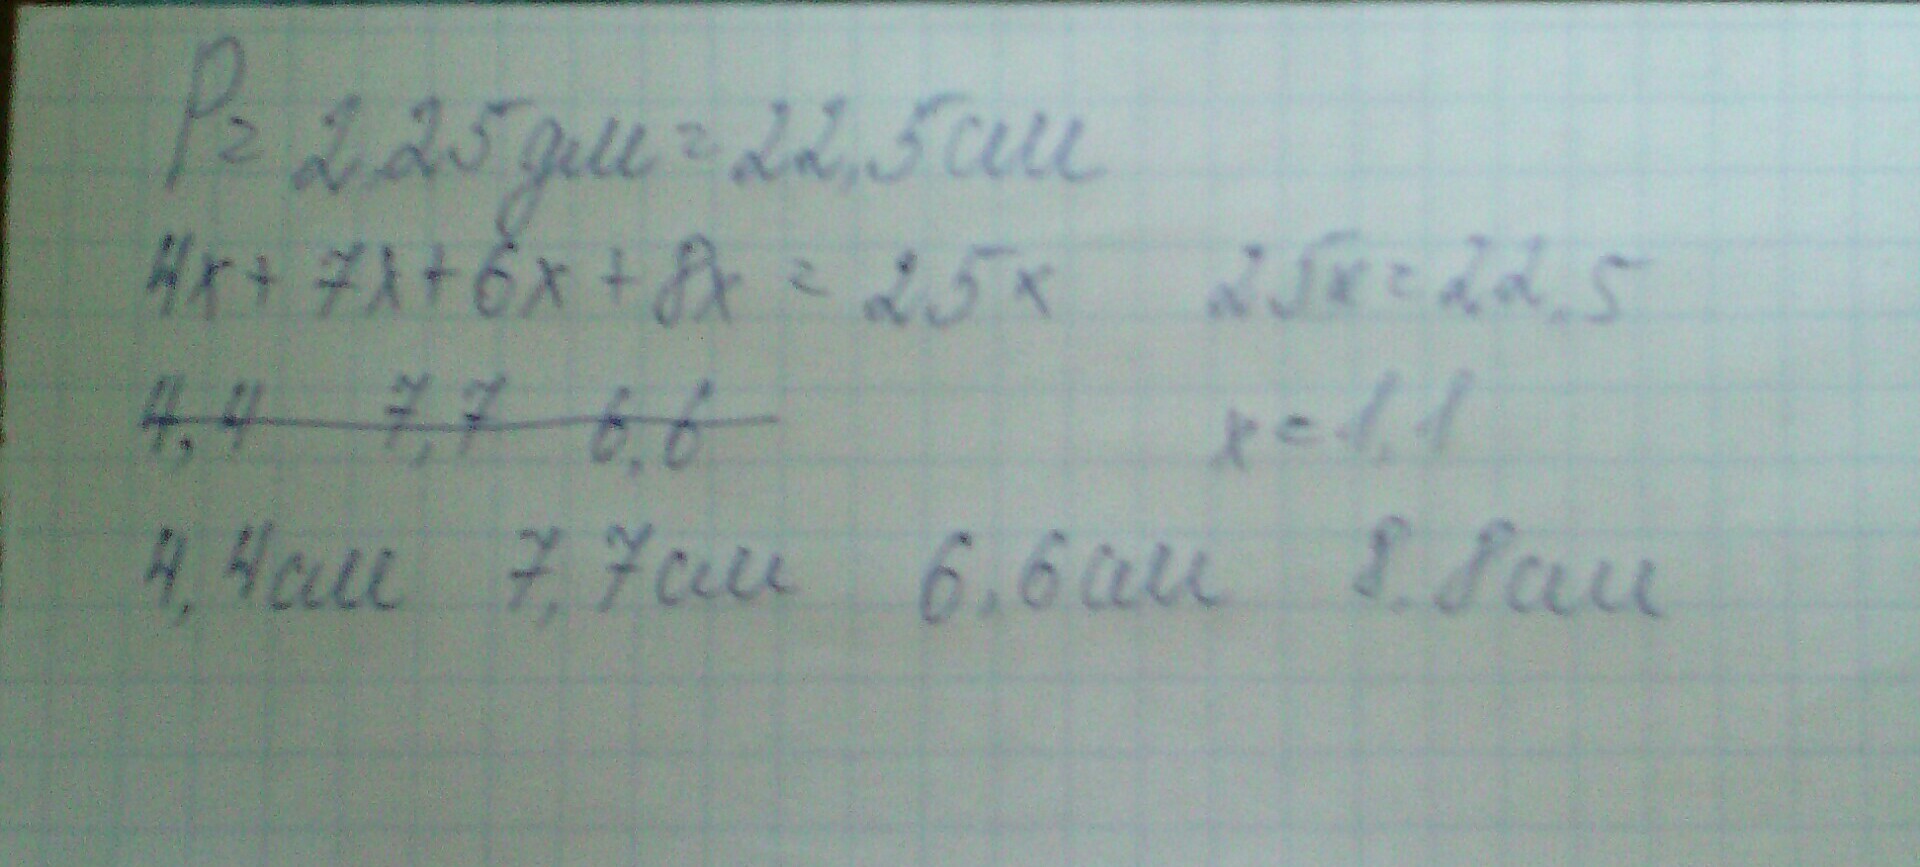 P = 2,25 дм = 22,5 см
4x + 7x + 6x + 8x = 25x 25x = 22,5
4,4 7,7 6,6 x = 1,1
4,4 см 7,7 см 6,6 см 8,8 см